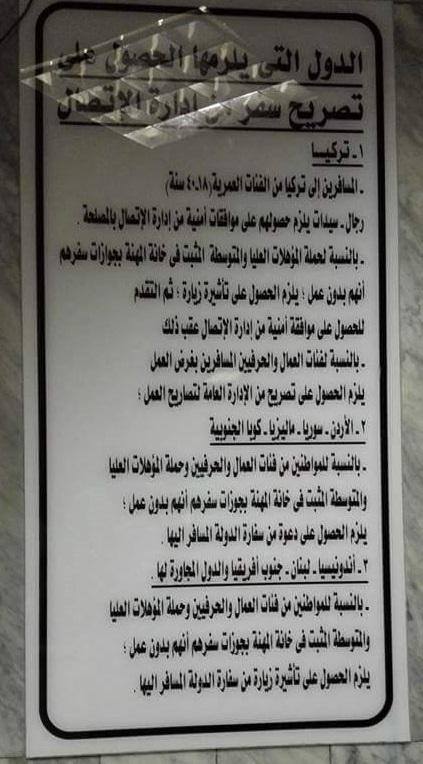 الدول التى يلزمها الحصول على
تصريح سفر من إدارة الإتصال
١ـ تركيـا
ـ المسافرين إلى تركيا من الفئات العمرية (١٨ـ٤٠ سنة)
رجال ـ سيدات يلزم حصولهم على موافقات أمنية من إدارة الإتصال بالمصلحة .
ـ بالنسبة لحملة المؤهلات العليا والمتوسطة المثبت فى خانة المهنة بجوازات سفرهم
أنهم بدون عمل ؛ يلزم الحصول على تأشيرة زيارة ؛ ثم التقدم
للحصول على موافقة أمنية من إدارة الإتصال عقب ذلك
ـ بالنسبة لفئات العمال والحرفيين المسافرين بغرض العمل
يلزم الحصول على تصريح من الإدارة العامة لتصاريح العمل ؛
٢ـ الأردن ـ سوريا ـ ماليزيا ـ كوبا الجنوبية
ـ بالنسبة للمواطنين من فئات العمال والحرفيين وحملة المؤهلات العليا
والمتوسطة المثبت فى خانة المهنة بجوزات سفرهم أنهم بدون عمل ؛
يلزم الحصول على دعوة من سفارة الدولة المسافر اليها .
٣ـ أندونيسيا ـ لبنان ـ جنوب أفريقيا والدول المجاورة لها .
ـ بالنسبة للمواطنين من فئات العمال والحرفيين وحملة المؤهلات العليا
والمتوسطة المثبت فى خانة المهنة بجوزات سفرهم أنهم بدون عمل ؛
يلزم الحصول على تأشيرة زيارة من سفارة الدولة المسافر اليها .